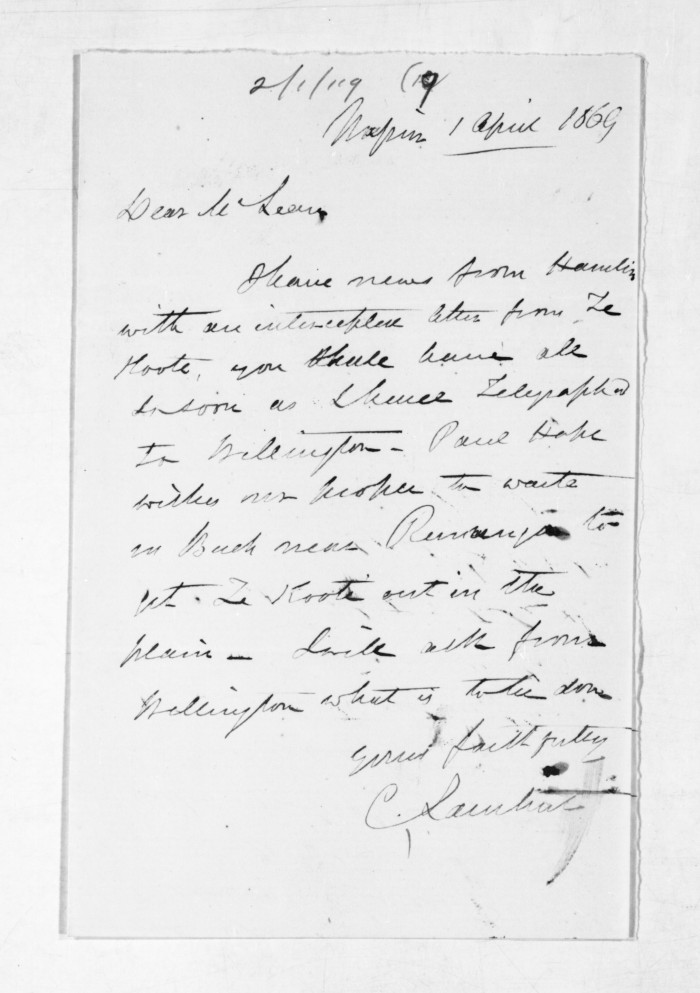 2/1/119 (19
Napier 1 April 1869
Dear McLean
I have news from Hamlin
with an intercepted letter from Te
Koote, you shall have all
so soon as I have Telegraphed
to Wellington - Paul Hape
wishes our people to wait
in Bush near Ruatanga to
get Te Koote out in the
plain - I will ask from
Wellington what is to be done
yours faithfully
C. Lambert